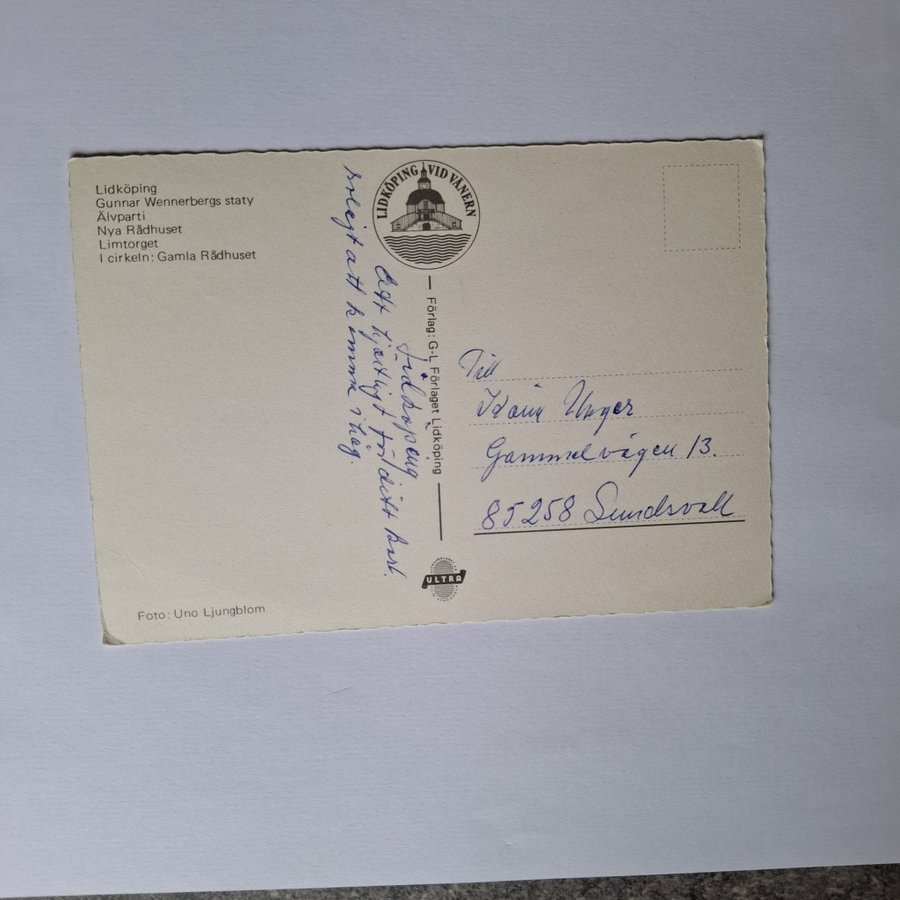 Lidköping
Gunnar Wennerbergs staty
Älvparti
Nya Rådhuset
Limtorget
I cirkeln: Gamla Rådhuset
LIDKÖPING VID VÄNERN
Förlag: G-L Förlaget Lidköping
Lidköping
Ett hjärtligt för ditt kort.
roligt att komma ihåg.
Till
Karin Unger
Gammelvägen 13.
85258 Sundsvall
ULTRA
Foto: Uno Ljungblom